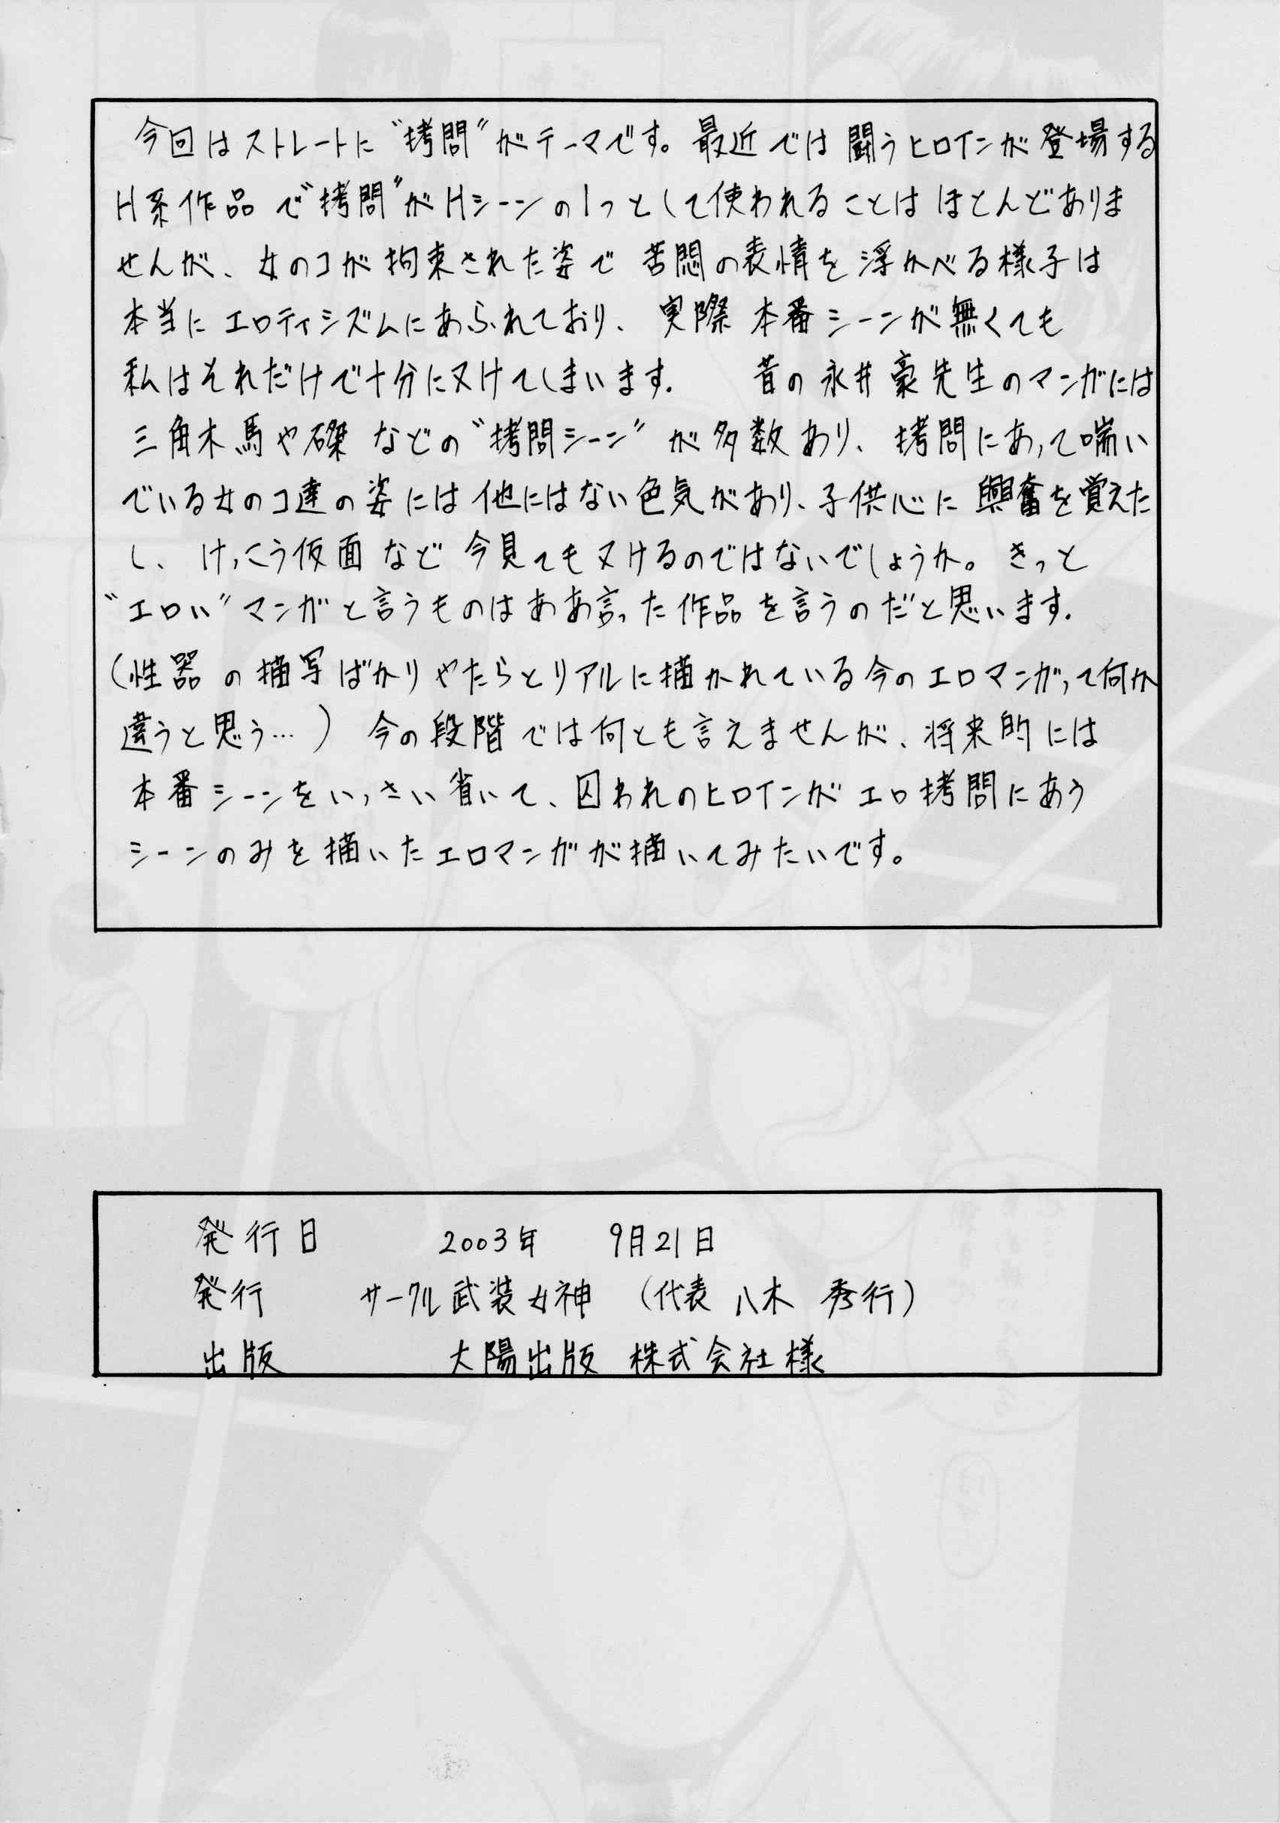 今回はストレートに“拷問”がテーマです。最近では闘うヒロインが登場する
H系作品で“拷問”がHシーンの1つとして使われることはほとんどありま
せんが、女のコが拘束された姿で苦悶の表情を浮かべる様子は
本当にエロティシズムにあふれており、実際本番シーンが無くても
私はそれだけで十分に又けてしまいます. 昔の永井豪先生のマンガには
三角木馬や磔などの“拷問シーン”が多数あり、拷問にあって喘い
でいる女のコ達の姿には他にはない色気があり、子供心に興奮を覚えた
し、けっこう仮面など今見ても又けるのではないでしょうか。きっと
“エロい”マンガと言うものはああ言った作品を言うのだと思います.
(性器の描写ばかりやたらとリアルに描かれている今のエロマンガって何か
違うと思う…) 今の段階では何とも言えませんが、将来的には
本番シーンをいっさい省いて、囚われのヒロインがエロ拷問にあう
シーンのみを描いたエロマンガが描いてみたいです。
発行日 2003年 9月21日
発行 サークル武装女神 (代表 八木 秀行)
出版 太陽出版 株式会社様